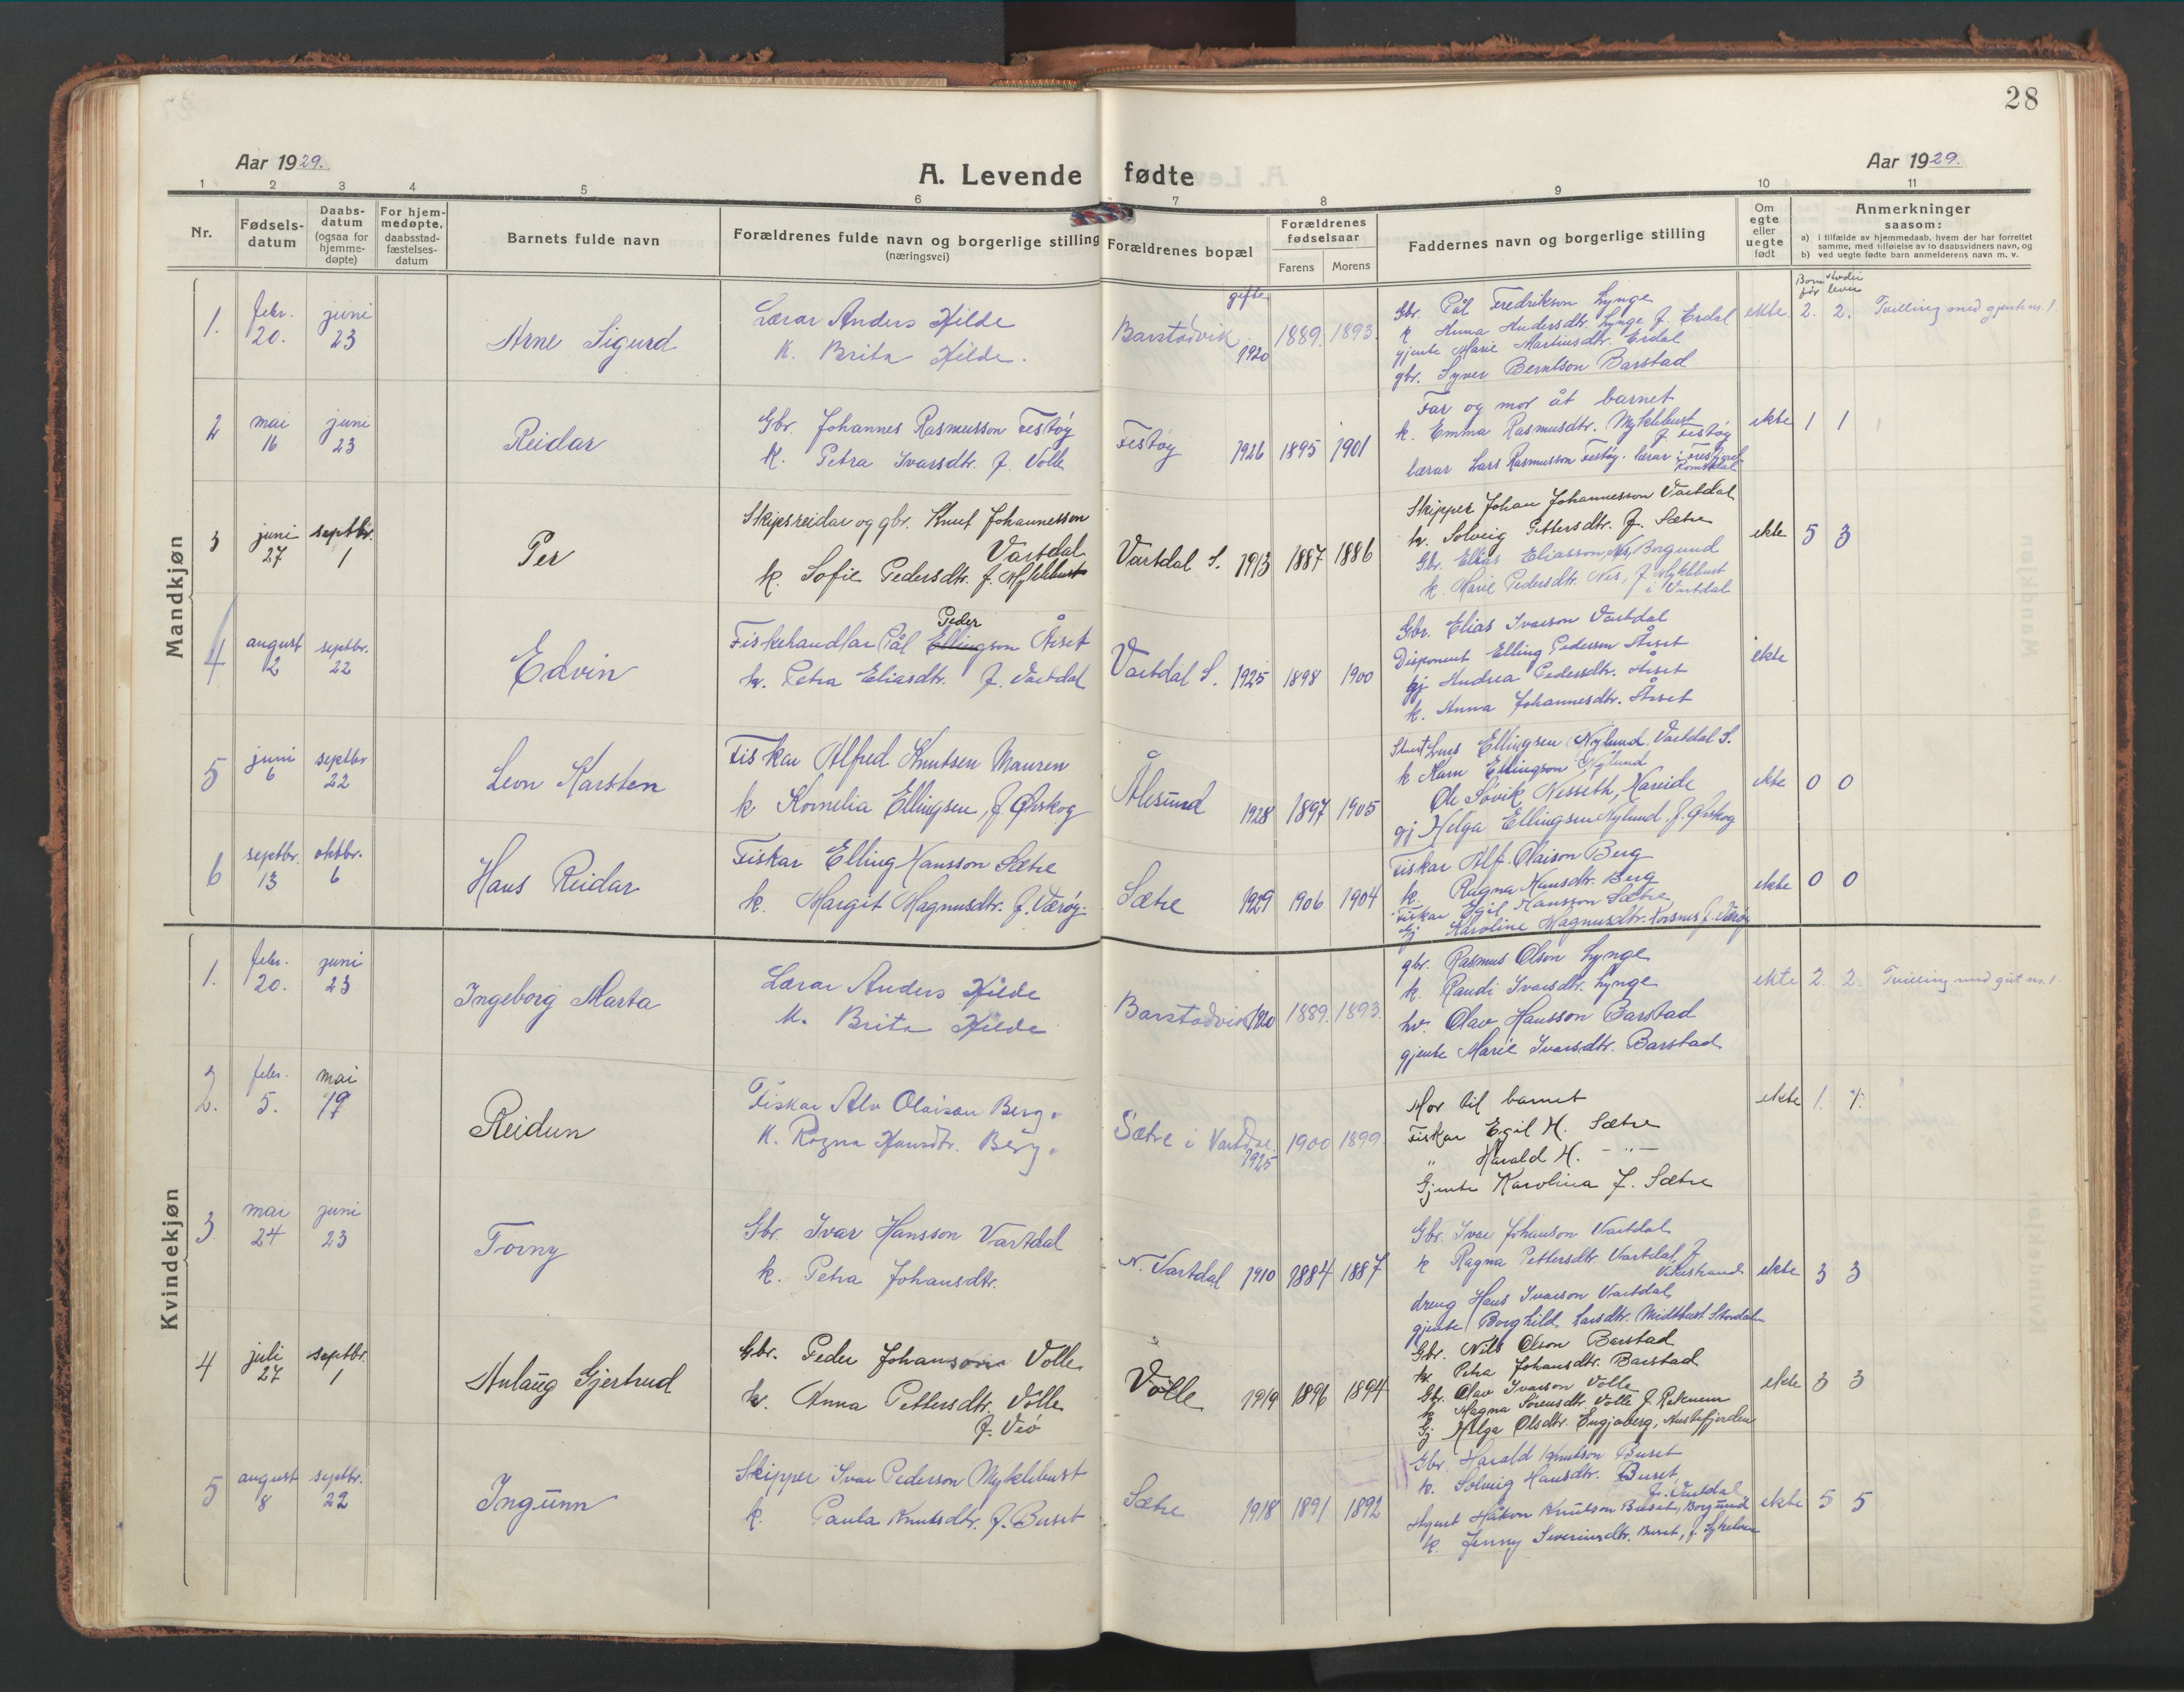 28
Aar 1929.
A. Levende fødte
Aar 1929.
1 2 3 4 5 6 7 8 9 10 11
Nr.
Fødsels-
datum
Daabs-
datum
(ogsaa for
hjemme-
døpte)
For hjem-
medøpte,
daabsstad-
fæstelses-
datum
Barnets fulde navn
Forældrenes fulde navn og borgerlige stilling
(næringsvei)
Forældrenes bopæl
Forældrenes
fødselsaar
Farens Morens
Faddernes navn og borgerlige stilling
Om
egte
eller
uegte
født
Anmerkninger
saasom:
a) i tilfælde av hjemmedaab, hvem der har forrettet
samme, med tilføielse av to daapsvidners navn, og
b) ved uegte fødte barn anmelderens navn m. v.
Mandkjøn
gifte
Born før
lever
1. febr. 20. juni 23
Arne Sigurd
Lærar Anders Hilde
K. Brita Hilde.
Barstadvik 1920 1889. 1893.
Gbr. Pål Fredrikson Lynge
k Anna Andersdtr. Lynge f. Erdal
gjente Marie Martinsdtr. Erdal
gbr. Syver Berntson Barstad
ekte 2. 2. Tvilling med gjente nr. 1.
2 mai 16 juni 23
Reidar
Gbr. Johannes Rasmusson Festøy
K. Petra Ivarsdtr. f. Volle
Festøy 1926 1895 1901
Far og mor åt barnet
k. Emma Rasmusdtr. Myklebust
f. Festøy
lærar Lars Rasmusson Festøy. lærar i
ekte 1 1
3 juni 27 septbr. 1
Per
Skipsreidar og gbr. Knut Johannesson
Vartdal
k. Sofie Pedersdtr. f. Myklebust
Vartdal S. 1913 1887 1886
Skipper Johan Johannesson Vartdal
k. Solveig Pettersdtr. f. Sætre
Gbr. Elias Eliasson Nes, Borgund
k. Marie Pedersdtr. Nes, f. Myklebust
i Vartdal
ekte 5 3
4 august 2 septbr. 22
Edvin
Peder
Fiskehandlar Pål Ellingson Årset
k. Petra Eliasdtr. f. Vartdal
Vartdal S. 1925 1898 1900
Gbr. Elias Ivarson Vartdal
Disponent Elling Pederson Årset
gj Andrea Pedersdtr. Årset
k. Anna Johannesdtr. Årset
ekte
5 juni 6 septbr 22
Leon Karsten
Fiskar Alfred Knutsen Mauren
k Kornelia Ellingsen, f. Ørskog
Ålesund 1928 1897 1905
Lars Ellingsen Nylund, Vartdal S.
k Karn Ellingson Nylund
Ole Søvik Nesseth, Hareide
gj Helga Ellingsen Nylund, f. Ørskog
ekte 0 0
6 septbr. 13 oktbr. 6
Hans Reidar
Fiskar Elling Hansson Sætre
k. Margit Magnusdtr. f. Værøy.
Sætre 1929 1906 1904
Fiskar Alf. Olaison Berg
k. Ragna Hansdtr. Berg
Fiskar Egil Hansson Sætre
Gj Karoline Magnusdtr. Korsnes f. Værøy
ekte 0 0
Kvindekjøn
1. febr. 20. juni 23
Ingeborg Marta
Lærar Anders Hilde
K. Brita Hilde
Barstadvik 1920 1889. 1893.
gbr. Rasmus Olson Lynge
k. Randi Ivarsdtr. Lynge
hv. Olav Hansson Barstad
gjente Marie Ivarsdtr. Barstad
ekte 2. 2. Tvilling med gut nr. 1.
2. febr. 5. mai 19
Reidun
Fiskar Alv Olaison Berg.
K. Ragna Hansdtr. Berg.
Sætre i Vartdal. 1925 1900 1899.
Mor til barnet
Fiskar Egil H. Sætre
" Harald H. - " -
Gjente Karolina J. Sætre
ekte 1. 1.
3. mai 24 juni 23
Torny
Gbr. Ivar Hansson Vartdal
k. Petra Johansdtr.
N. Vartdal 1910 1884 1887
Gbr. Ivar Johanson Vartdal
k Ragna Pettersdtr. Vartdal, f.
Vikestrand
dreng Hans Ivarson Vartdal
gjente Borghild Larsdtr. Midtbust Stordalen
ekte 3 3
4 juli 27 septbr. 1
Anlaug Gjertrud
Gbr. Peder Johanson Volle
k. Anna Pettersdtr. Volle
f. Veö
Volle 1919 1896 1894
Gbr. Nils Olson Barstad
k. Petra Johansdtr. Barstad
Gbr. Olav Ivarson Volle
k Magna Sørensdtr. Volle f. Raknem
Gj Helga Olsdtr. Engjaberg, Austefjorden
ekte 3 3
5 august 8 septbr. 22
Ingunn
Skipper Ivar Pederson Myklebust
k. Paula Knutsdtr. f. Buset
Sætre 1918 1891 1892
Gbr. Harald Knutson Buset
k. Solveig Hansdtr. Buset,
f. Vartdal
Agent Håkon Knutson Buset, Borgund
k. Jenny Severinsdtr. Buset, f.
ekte 5 5